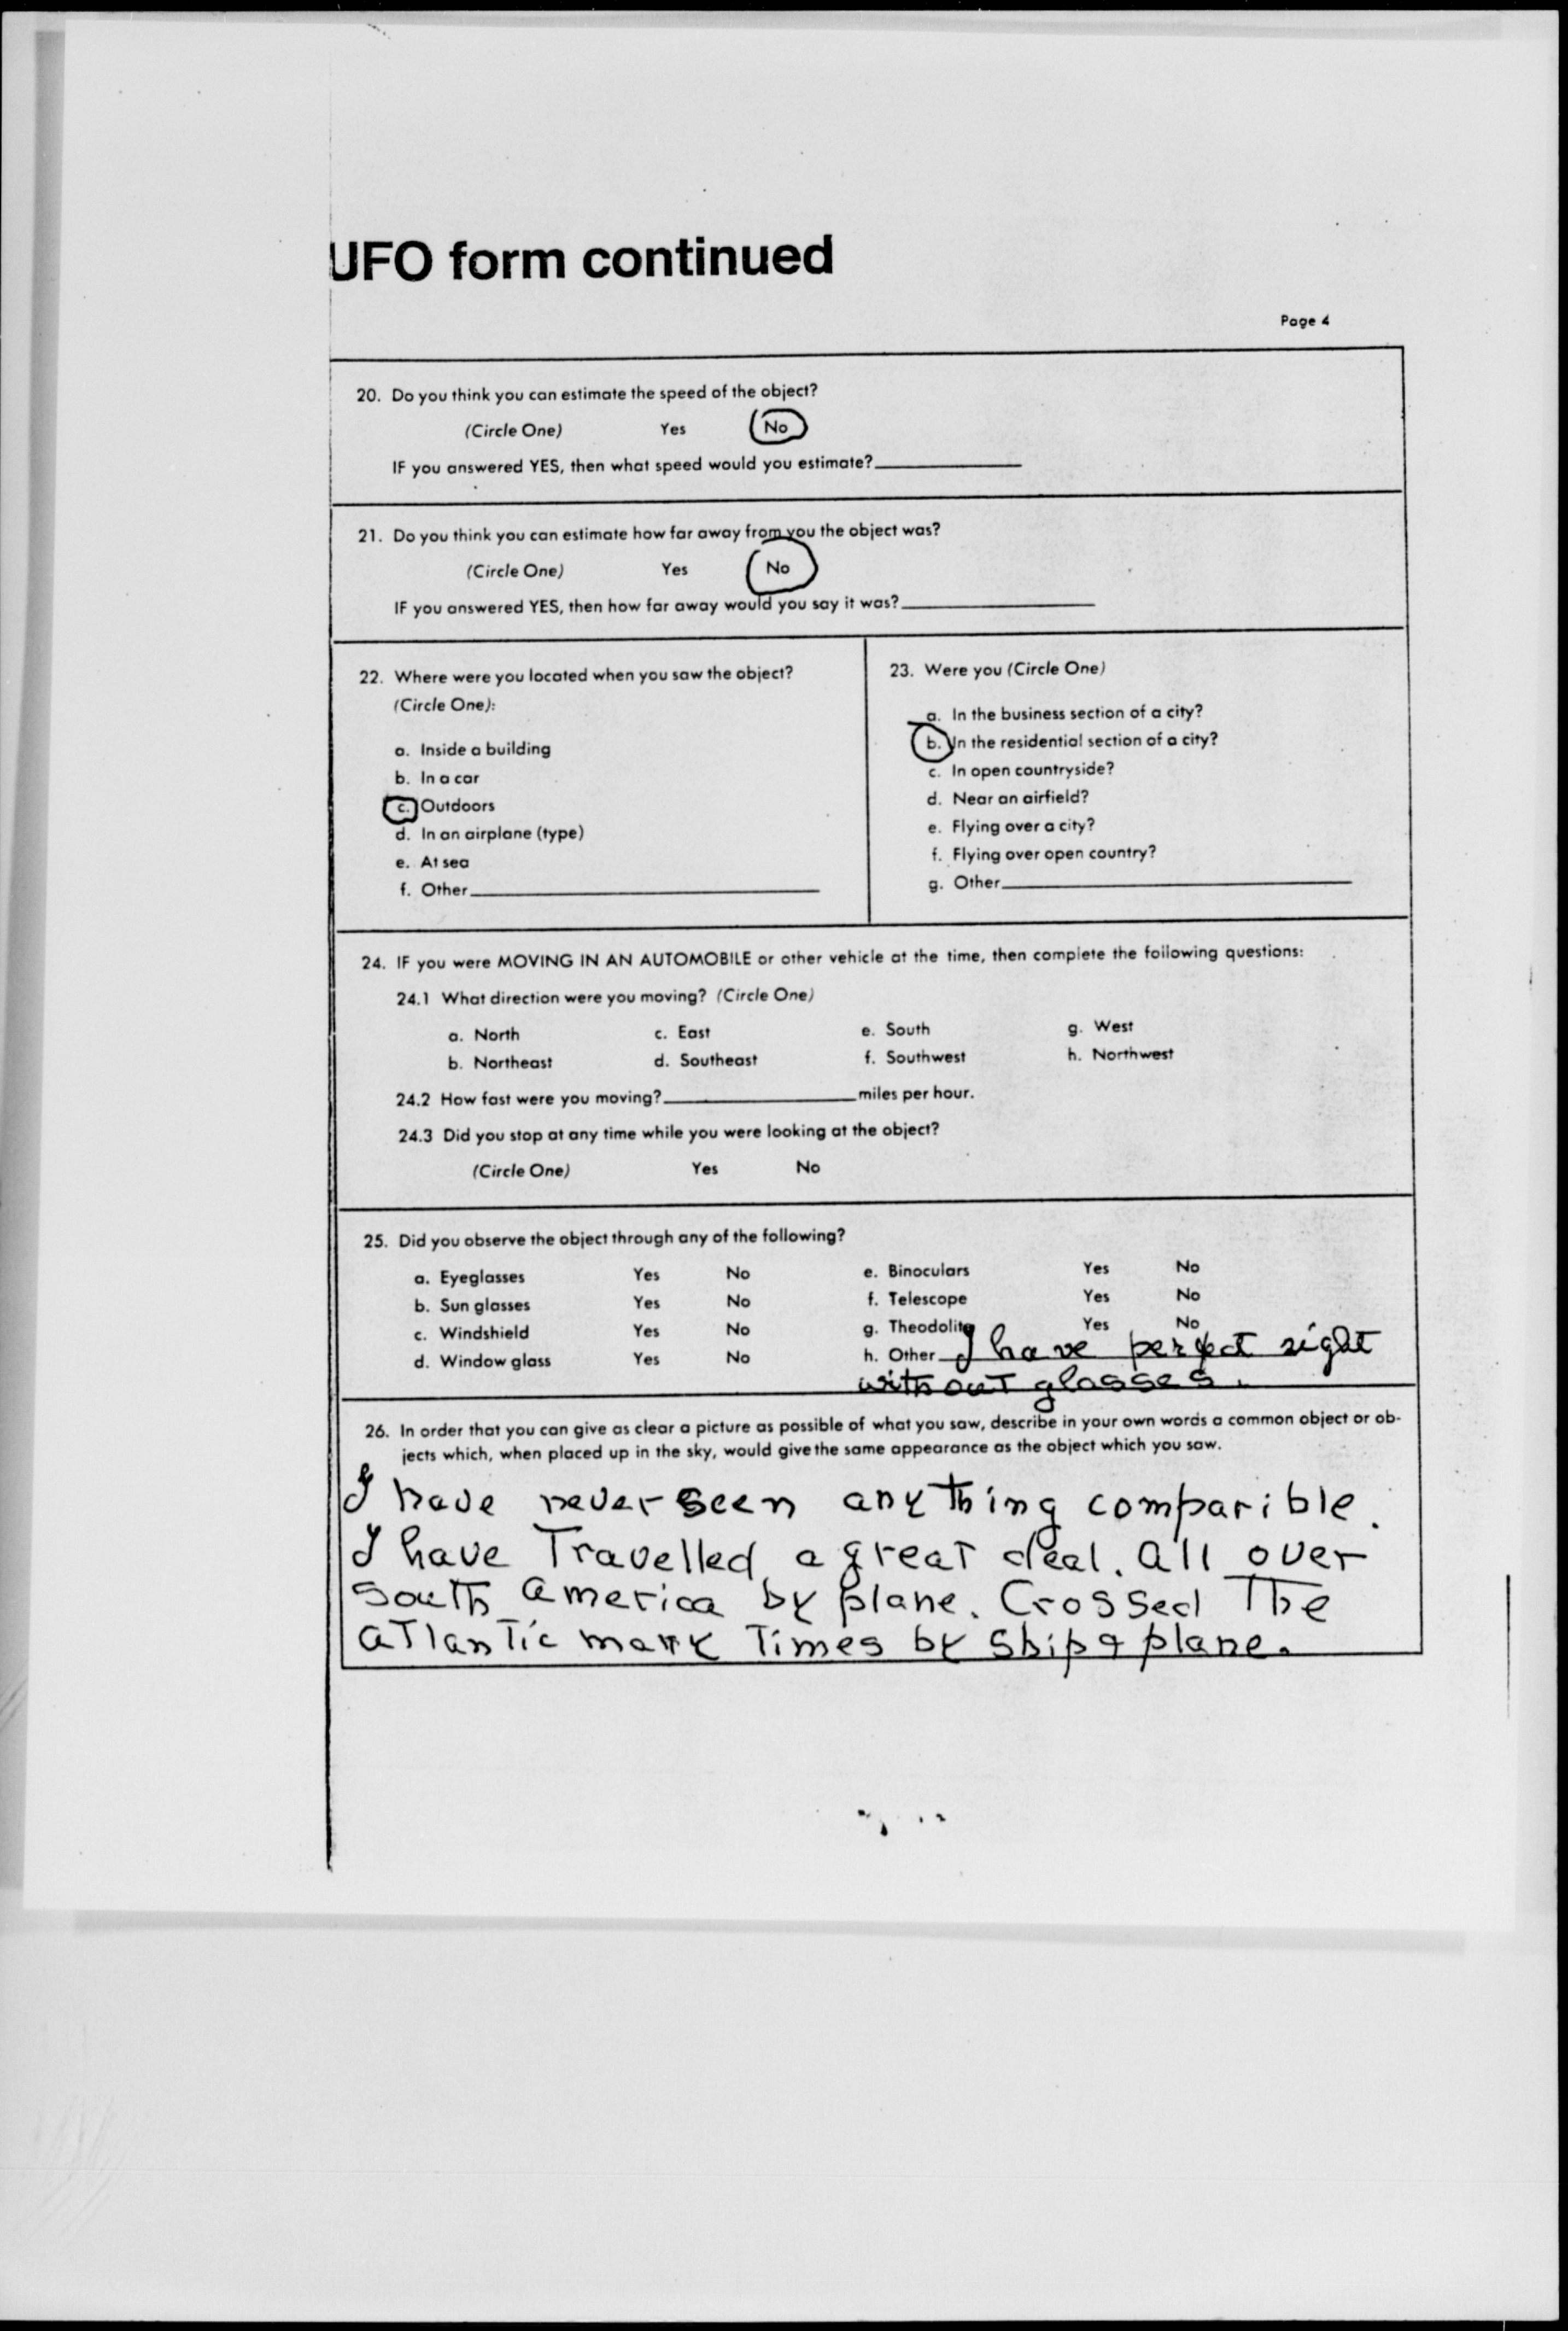 UFO form continued
Page 4
20. Do you think you can estimate the speed of the object?
(Circle One) Yes No
IF you answered YES, then what speed would you estimate?
21. Do you think you can estimate how far away from you the object was?
(Circle One) Yes No
IF you answered YES, then how far away would you say it was?
22. Where were you located when you saw the object?
(Circle One):
a. Inside a building
b. In a car
c. Outdoors
d. In an airplane (type)
e. At sea
f. Other
23. Were you (Circle One)
a. In the business section of a city?
b. In the residential section of a city?
c. In open countryside?
d. Near an airfield?
e. Flying over a city?
f. Flying over open country?
g. Other
24. IF you were MOVING IN AN AUTOMOBILE or other vehicle at the time, then complete the following questions:
24.1 What direction were you moving? (Circle One)
a. North c. East e. South g. West
b. Northeast d. Southeast f. Southwest h. Northwest
24.2 How fast were you moving? miles per hour.
24.3 Did you stop at any time while you were looking at the object?
(Circle One) Yes No
25. Did you observe the object through any of the following?
a. Eyeglasses Yes No e. Binoculars Yes No
b. Sun glasses Yes No f. Telescope Yes No
c. Windshield Yes No g. Theodolite Yes No
d. Window glass Yes No h. Other I have perfect sight
without glasses.
26. In order that you can give as clear a picture as possible of what you saw, describe in your own words a common object or ob-
jects which, when placed up in the sky, would give the same appearance as the object which you saw.
I have never seen anything comparible.
I have Travelled a great deal. all over
South america by plane. Crossed The
aTlanTic many Times by Ship & plane.